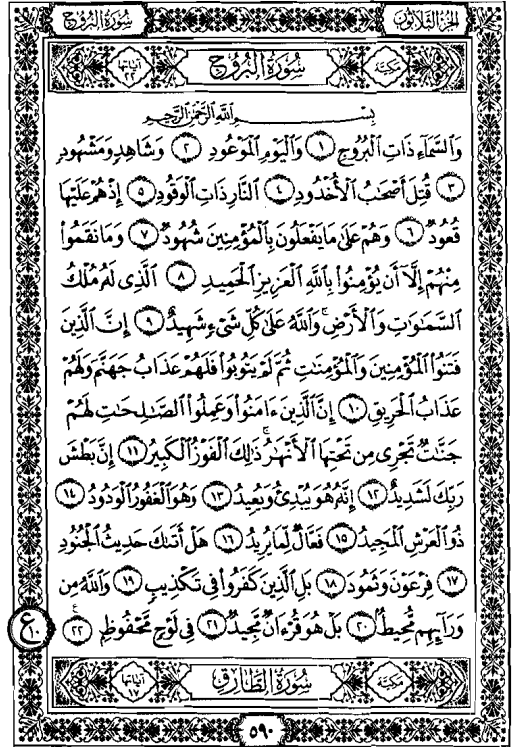 سُورَةُ البُرُوجِ الجُزْءُ الثَّلَاثُونَ
مَكِّيَّة سُورَةُ البُرُوجِ آيَاتُهَا ٢٢
بِسْمِ ٱللَّهِ ٱلرَّحْمَٰنِ ٱلرَّحِيمِ
وَٱلسَّمَآءِ ذَاتِ ٱلْبُرُوجِ ١ وَٱلْيَوْمِ ٱلْمَوْعُودِ ٢ وَشَاهِدٍ وَمَشْهُودٍ
٣ قُتِلَ أَصْحَٰبُ ٱلْأُخْدُودِ ٤ ٱلنَّارِ ذَاتِ ٱلْوَقُودِ ٥ إِذْ هُمْ عَلَيْهَا
قُعُودٌ ٦ وَهُمْ عَلَىٰ مَا يَفْعَلُونَ بِٱلْمُؤْمِنِينَ شُهُودٌ ٧ وَمَا نَقَمُوا۟
مِنْهُمْ إِلَّآ أَن يُؤْمِنُوا۟ بِٱللَّهِ ٱلْعَزِيزِ ٱلْحَمِيدِ ٨ ٱلَّذِى لَهُۥ مُلْكُ
ٱلسَّمَٰوَٰتِ وَٱلْأَرْضِ ۚ وَٱللَّهُ عَلَىٰ كُلِّ شَىْءٍ شَهِيدٌ ٩ إِنَّ ٱلَّذِينَ
فَتَنُوا۟ ٱلْمُؤْمِنِينَ وَٱلْمُؤْمِنَٰتِ ثُمَّ لَمْ يَتُوبُوا۟ فَلَهُمْ عَذَابُ جَهَنَّمَ وَلَهُمْ
عَذَابُ ٱلْحَرِيقِ ١٠ إِنَّ ٱلَّذِينَ ءَامَنُوا۟ وَعَمِلُوا۟ ٱلصَّٰلِحَٰتِ لَهُمْ
جَنَّٰتٌ تَجْرِى مِن تَحْتِهَا ٱلْأَنْهَٰرُ ۚ ذَٰلِكَ ٱلْفَوْزُ ٱلْكَبِيرُ ١١ إِنَّ بَطْشَ
رَبِّكَ لَشَدِيدٌ ١٢ إِنَّهُۥ هُوَ يُبْدِئُ وَيُعِيدُ ١٣ وَهُوَ ٱلْغَفُورُ ٱلْوَدُودُ ١٤
ذُو ٱلْعَرْشِ ٱلْمَجِيدُ ١٥ فَعَّالٌ لِّمَا يُرِيدُ ١٦ هَلْ أَتَىٰكَ حَدِيثُ ٱلْجُنُودِ
١٧ فِرْعَوْنَ وَثَمُودَ ١٨ بَلِ ٱلَّذِينَ كَفَرُوا۟ فِى تَكْذِيبٍ ١٩ وَٱللَّهُ مِن
وَرَآئِهِم مُّحِيطٌ ٢٠ بَلْ هُوَ قُرْءَانٌ مَّجِيدٌ ٢١ فِى لَوْحٍ مَّحْفُوظٍ ٢٢
ع ١٠
مَكِّيَّة سُورَةُ الطَّارِقِ آيَاتُهَا ١٧
٥٩٠